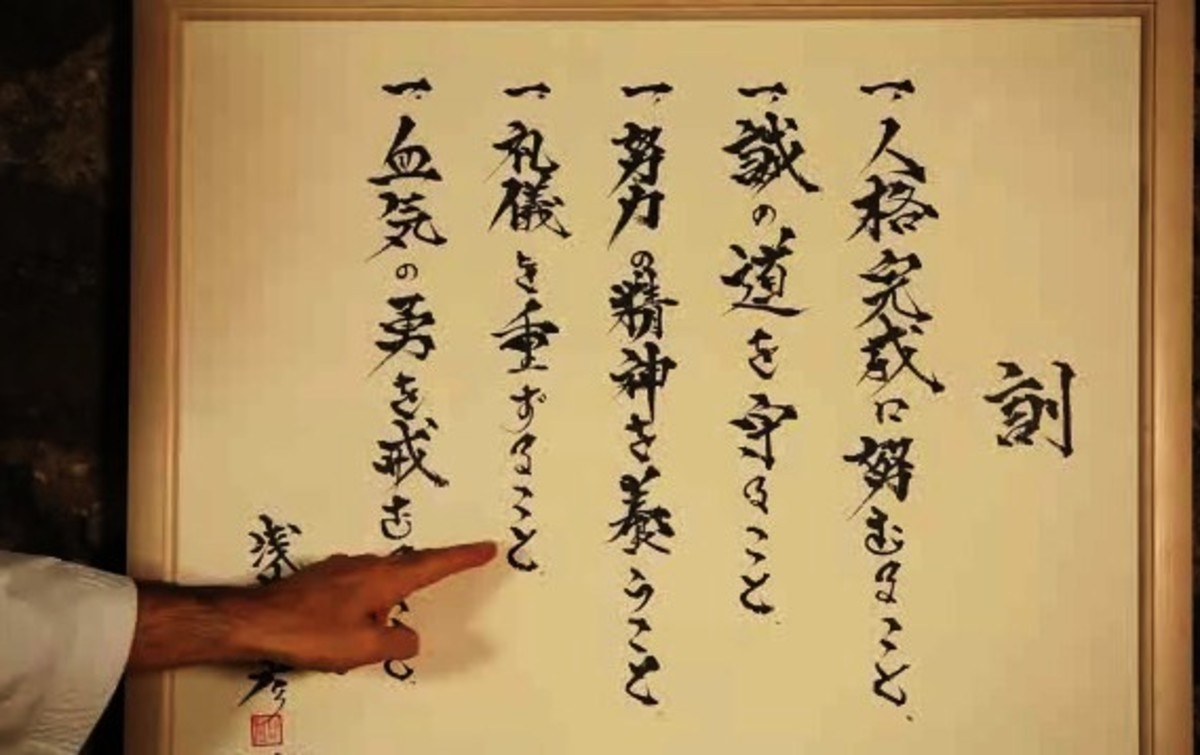 訓
一、人格完成に努むること、
一、誠の道を守ること、
一、努力の精神を養うこと
一、礼儀を重ずること、
一、血気の勇を戒むること、
浅
彦